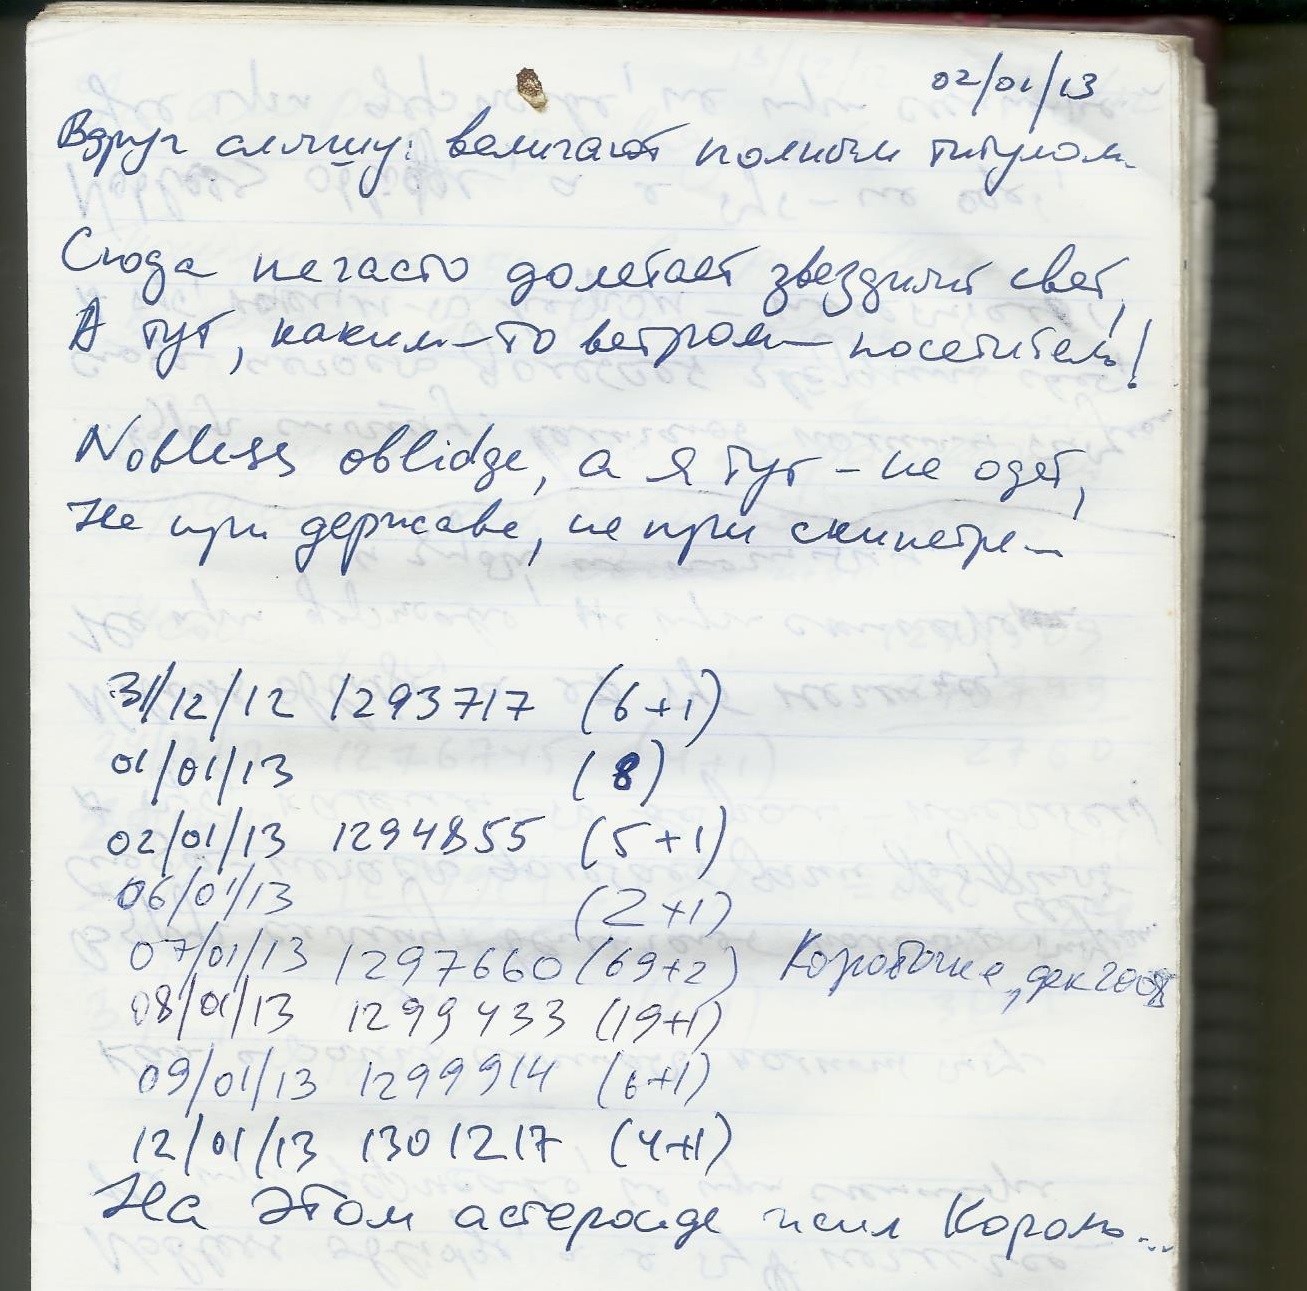 02/01/13
Вдруг слышу: величают полным титулом
Сюда нечасто долетает звездный свет,
А тут, каким-то ветром – посетитель!
Nobless oblidge, а я тут – не одет,
Не при державе, не при скипетре –
31/12/12 1293717 (6+1)
01/01/13 (8)
02/01/13 1294855 (5+1)
06/01/13 (2+1)
07/01/13 1297660 (69+2) Коробочка, дек 2008
08/01/13 1299433 (19+1)
09/01/13 1299914 (6+1)
12/01/13 1301217 (4+1)
На этом астероиде жил Король...